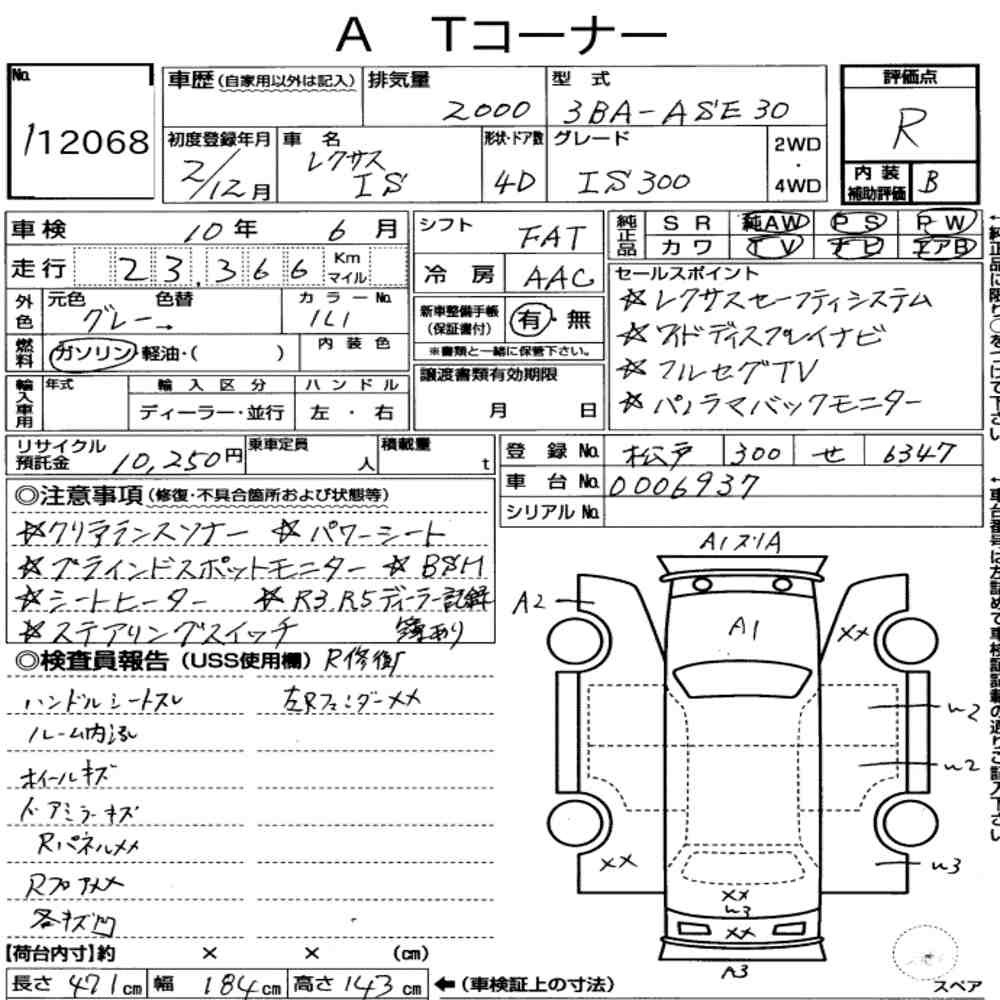 A Tコーナー
No. 112068
車歴(自家用以外は記入) 排気量 2000 型式 3BA-ASE30
初度登録年月 2/12月 車名 レクサス IS 形状・ドア数 4D グレード IS300 2WD・4WD
評価点 R
内装補助評価 B
車検 10年 6月
走行 23,366 Km マイル
外色 元色 グレー 色替 → カラーNo. 1L1
燃料 ガソリン・軽油・( ) 内装色
輸入車用 年式 輸入区分 ディーラー・並行 ハンドル 左・右
シフト FAT
冷房 AAC
新車整備手帳(保証書付) 有・無
※書類と一緒に保管下さい。
譲渡書類有効期限 月 日
純正品 SR 純AW PS PW
カワ TV ナビ エアB
セールスポイント
☆レクサスセーフティシステム
☆ワイドディスプレイナビ
☆フルセグTV
☆パノラマバックモニター
リサイクル預託金 10,250円 乗車定員 人 積載量 t
登録No. 松戸 300 せ 6347
車台No. 0006937
シリアルNo.
◎注意事項(修復・不具合箇所および状態等)
☆クリアランスソナー ☆パワーシート
☆ブラインドスポットモニター ☆BSM
☆シートヒーター ☆R3.R5ディーラー記録
☆ステアリングスイッチ 簿あり
◎検査員報告(USS使用欄) R修復
ハンドルシートスレ 左Rフェンダーメメ
ルーム内汚
ホイールキズ
ドアミラーキズ
Rパネルメメ
Rフロアメメ
各キズ凹
【荷台内寸】約 × × (cm)
長さ 471cm 幅 184cm 高さ 143cm ←(車検証上の寸法)
A1ズリA
A2
A1
××
W2
W2
××
W3
××
W3
××
A3
スペア
←純正品に限り○をつけて下さい
←車台番号は左詰めで車検証記載の通りご記入下さい